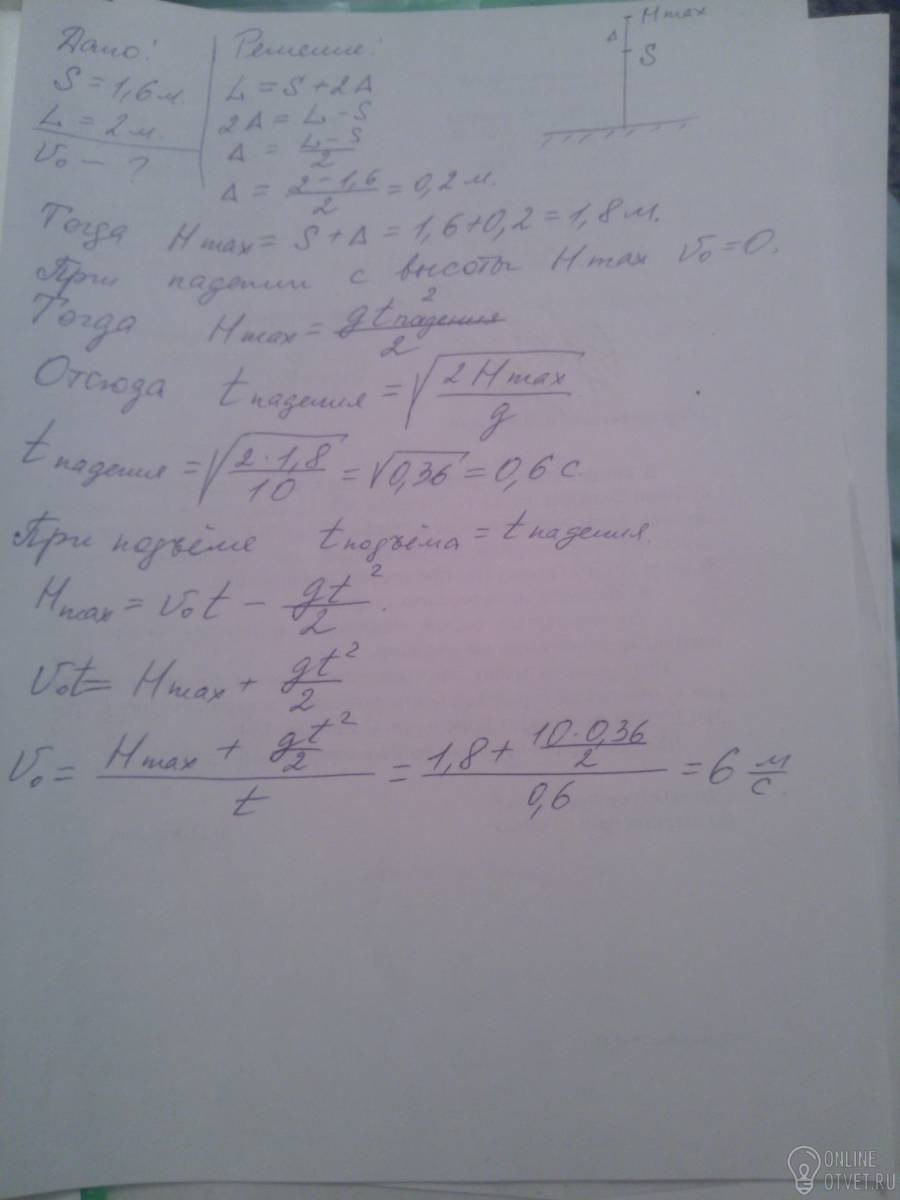 Дано:
S = 1,6 м.
L = 2 м.
V₀ – ?
Решение:
L = S + 2Δ
2Δ = L – S
Δ = (L – S)/2
Δ = (2 – 1,6)/2 = 0,2 м.
H max
Δ
S
Тогда H max = S + Δ = 1,6 + 0,2 = 1,8 м.
При падении с высоты H max V₀ = 0.
Тогда H max = gt²падения/2
Отсюда t падения = √(2 H max/g)
t падения = √(2·1,8/10) = √0,36 = 0,6 с.
При подъёме t подъёма = t падения.
H max = V₀t – gt²/2.
V₀t = H max + gt²/2
V₀ = (H max + gt²/2)/t = (1,8 + 10·0,36/2)/0,6 = 6 м/с.
ONLINE
OTVET.RU